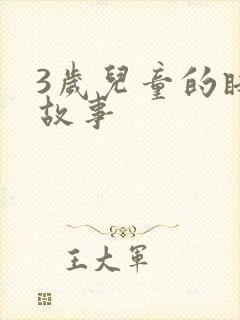 3歲兒童的睡
故事
王大軍